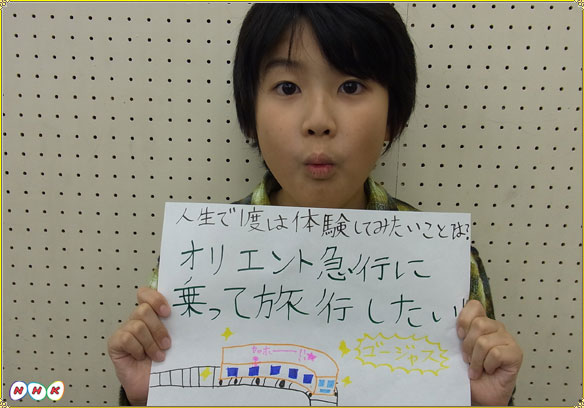 人生で1度は体験してみたいことは?
オリエント急行に
乗って旅行したい!!
ゴージャス
NHK